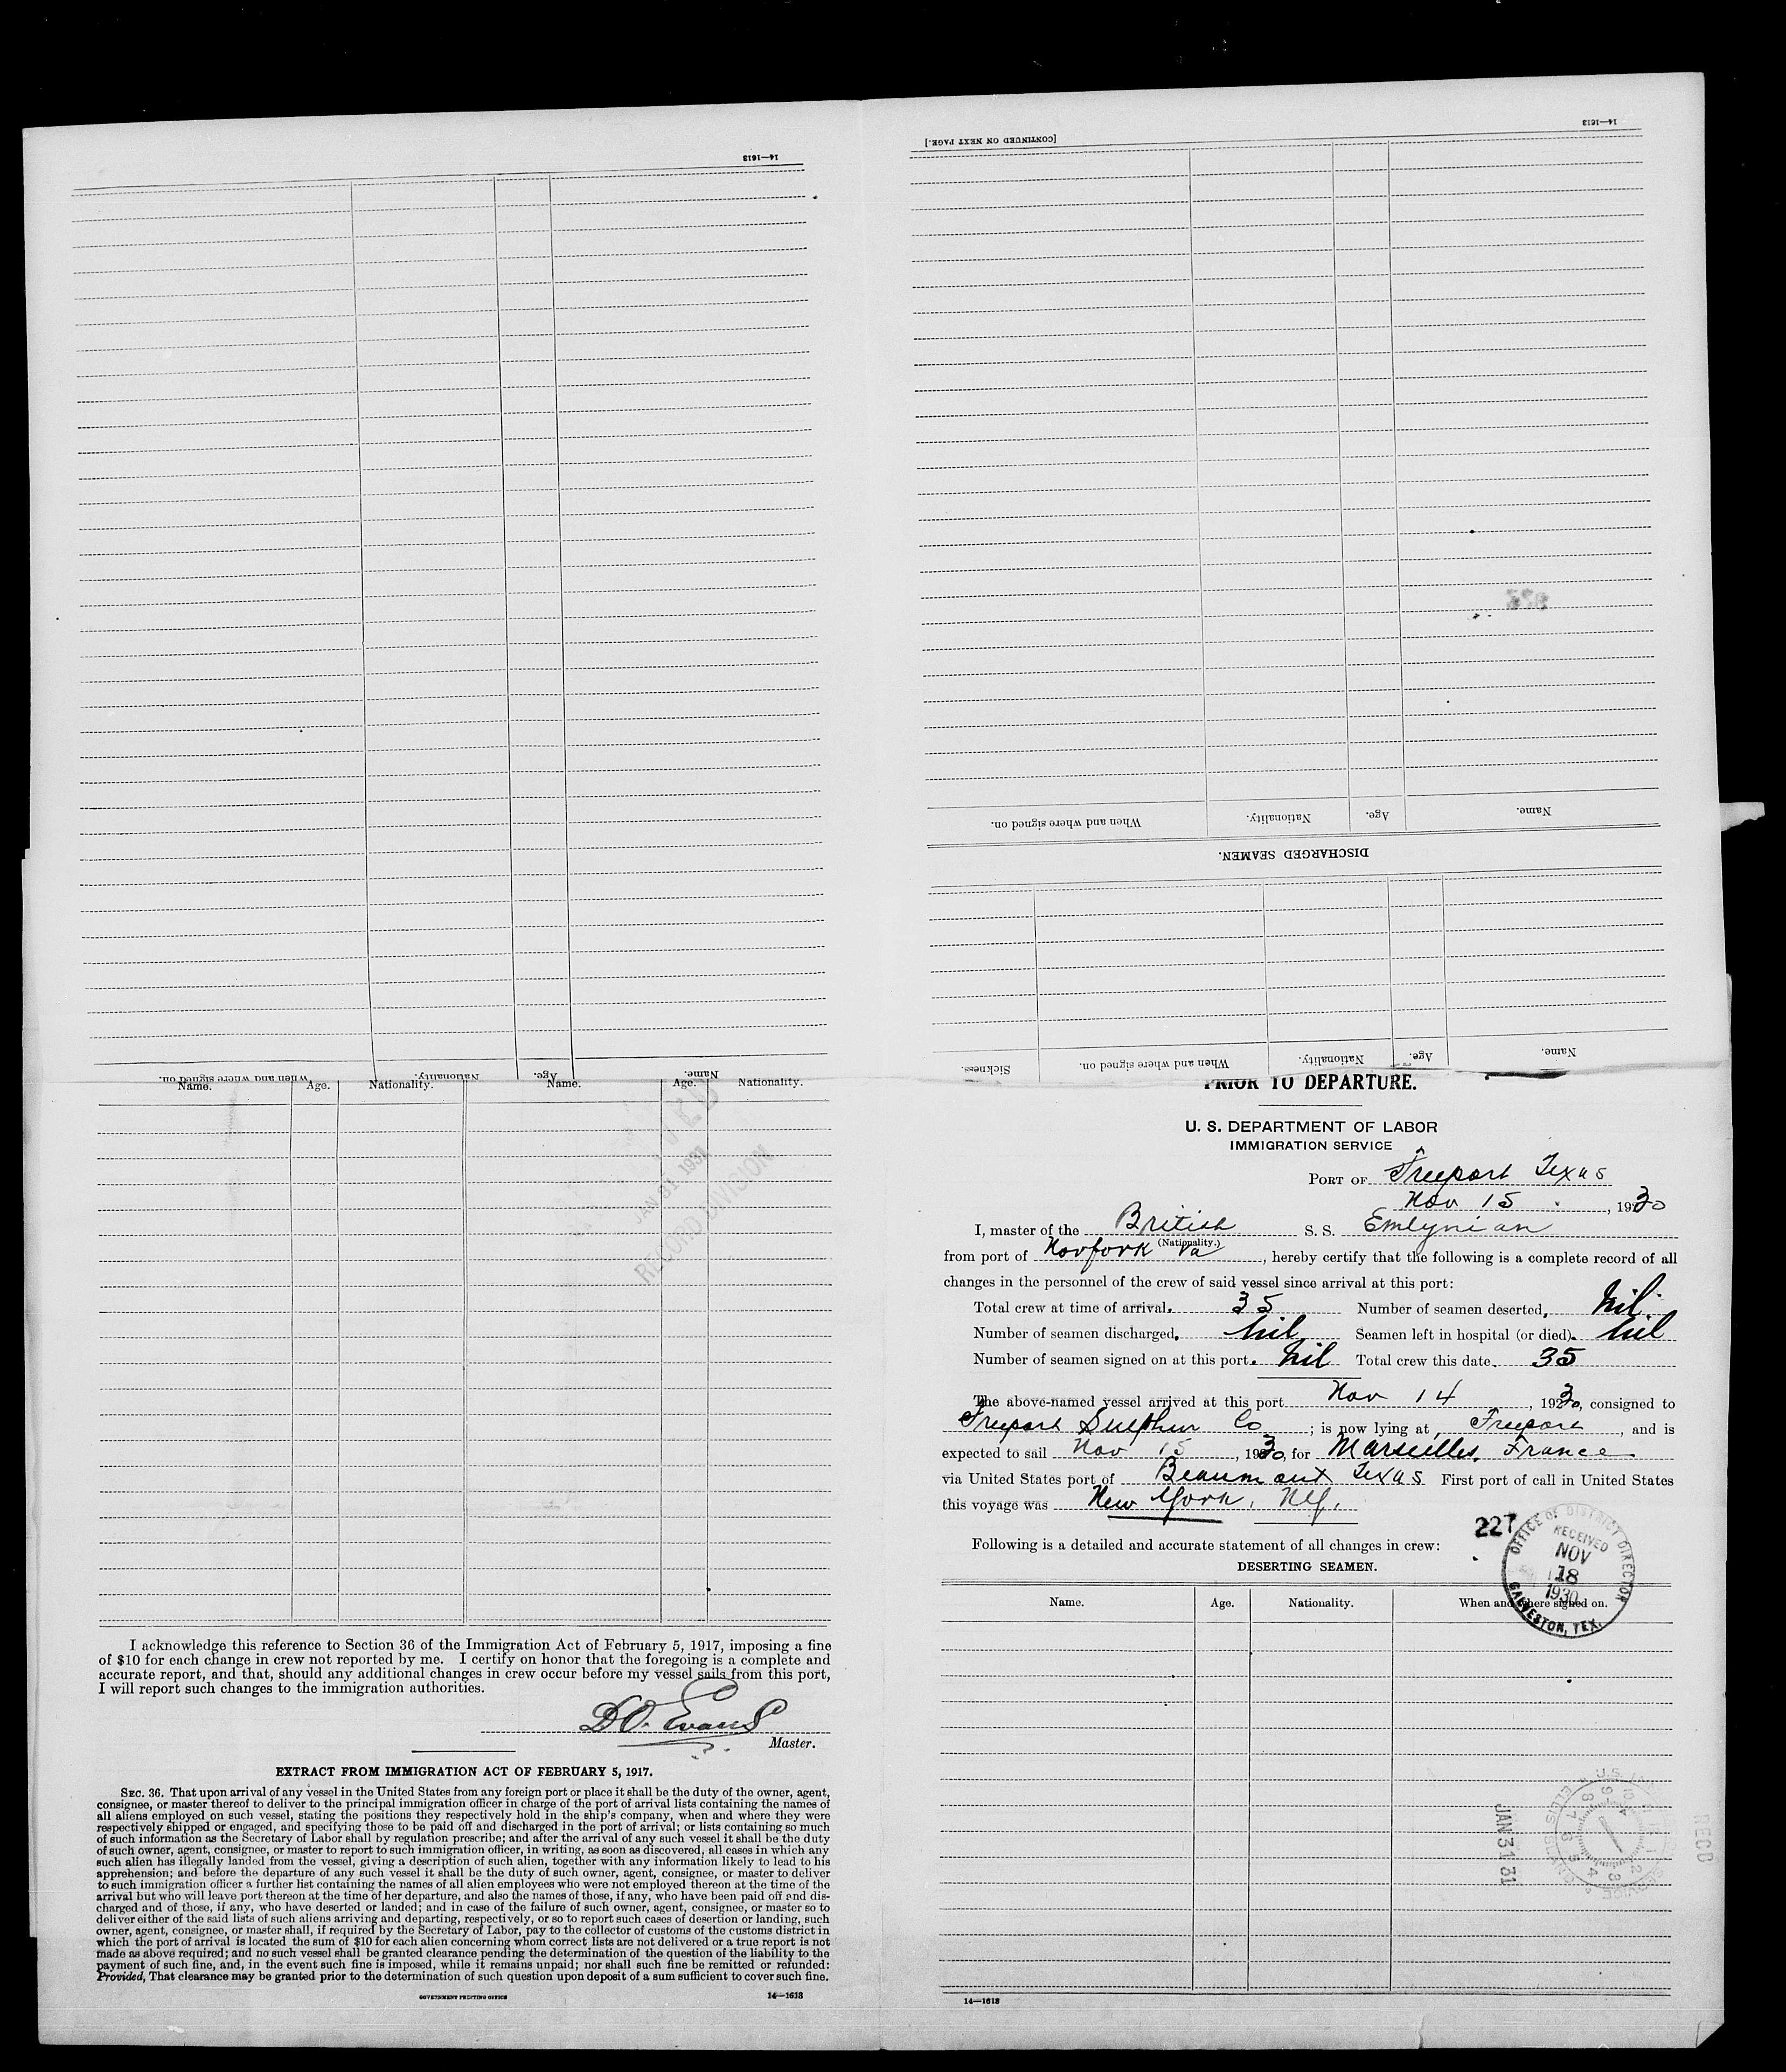 14—1613
[CONTINUED ON NEXT PAGE.]
14—1613
Name.
Age.
Nationality.
When and where signed on.
DISCHARGED SEAMEN.
Name.
Age.
Nationality.
When and where signed on.
Sickness.
Name.
Age.
Nationality.
When and where signed on.
Name. Age. Nationality. Name. Age. Nationality.
JAN 31 1931
RECORD DIVISION
I acknowledge this reference to Section 36 of the Immigration Act of February 5, 1917, imposing a fine
of $10 for each change in crew not reported by me. I certify on honor that the foregoing is a complete and
accurate report, and that, should any additional changes in crew occur before my vessel sails from this port,
I will report such changes to the immigration authorities.
D.O. Evans
Master.
EXTRACT FROM IMMIGRATION ACT OF FEBRUARY 5, 1917.
SEC. 36. That upon arrival of any vessel in the United States from any foreign port or place it shall be the duty of the owner, agent,
consignee, or master thereof to deliver to the principal immigration officer in charge of the port of arrival lists containing the names of
all aliens employed on such vessel, stating the positions they respectively hold in the ship's company, when and where they were
respectively shipped or engaged, and specifying those to be paid off and discharged in the port of arrival; or lists containing so much
of such information as the Secretary of Labor shall by regulation prescribe; and after the arrival of any such vessel it shall be the duty
of such owner, agent, consignee, or master to report to such immigration officer, in writing, as soon as discovered, all cases in which any
such alien has illegally landed from the vessel, giving a description of such alien, together with any information likely to lead to his
apprehension; and before the departure of any such vessel it shall be the duty of such owner, agent, consignee, or master to deliver
to such immigration officer a further list containing the names of all alien employees who were not employed thereon at the time of the
arrival but who will leave port thereon at the time of her departure, and also the names of those, if any, who have been paid off and dis-
charged and of those, if any, who have deserted or landed; and in case of the failure of such owner, agent, consignee, or master so to
deliver either of the said lists of such aliens arriving and departing, respectively, or so to report such cases of desertion or landing, such
owner, agent, consignee, or master shall, if required by the Secretary of Labor, pay to the collector of customs of the customs district in
which the port of arrival is located the sum of $10 for each alien concerning whom correct lists are not delivered or a true report is not
made as above required; and no such vessel shall be granted clearance pending the determination of the question of the liability to the
payment of such fine, and, in the event such fine is imposed, while it remains unpaid; nor shall such fine be remitted or refunded:
Provided, That clearance may be granted prior to the determination of such question upon deposit of a sum sufficient to cover such fine.
GOVERNMENT PRINTING OFFICE 14—1613
PRIOR TO DEPARTURE.
U. S. DEPARTMENT OF LABOR
IMMIGRATION SERVICE
PORT OF Freeport Texas
Nov 15, 1930
I, master of the British S. S. Emlynian
(Nationality.)
from port of Norfork Va, hereby certify that the following is a complete record of all
changes in the personnel of the crew of said vessel since arrival at this port:
Total crew at time of arrival. 35 Number of seamen deserted, Nil
Number of seamen discharged, Nil Seamen left in hospital (or died). Nil
Number of seamen signed on at this port. Nil Total crew this date. 35
The above-named vessel arrived at this port Nov 14, 1930, consigned to
Freeport Sulphur Co; is now lying at, Freeport, and is
expected to sail Nov 15, 1930, for Marseilles, France
via United States port of Beaumont Texas First port of call in United States
this voyage was New York, NY.
227
Following is a detailed and accurate statement of all changes in crew:
DESERTING SEAMEN.
OFFICE OF DISTRICT DIRECTOR
RECEIVED
NOV
18
1930
GALVESTON, TEX.
Name. Age. Nationality. When and where signed on.
JAN 31 31
RECD
14—1613